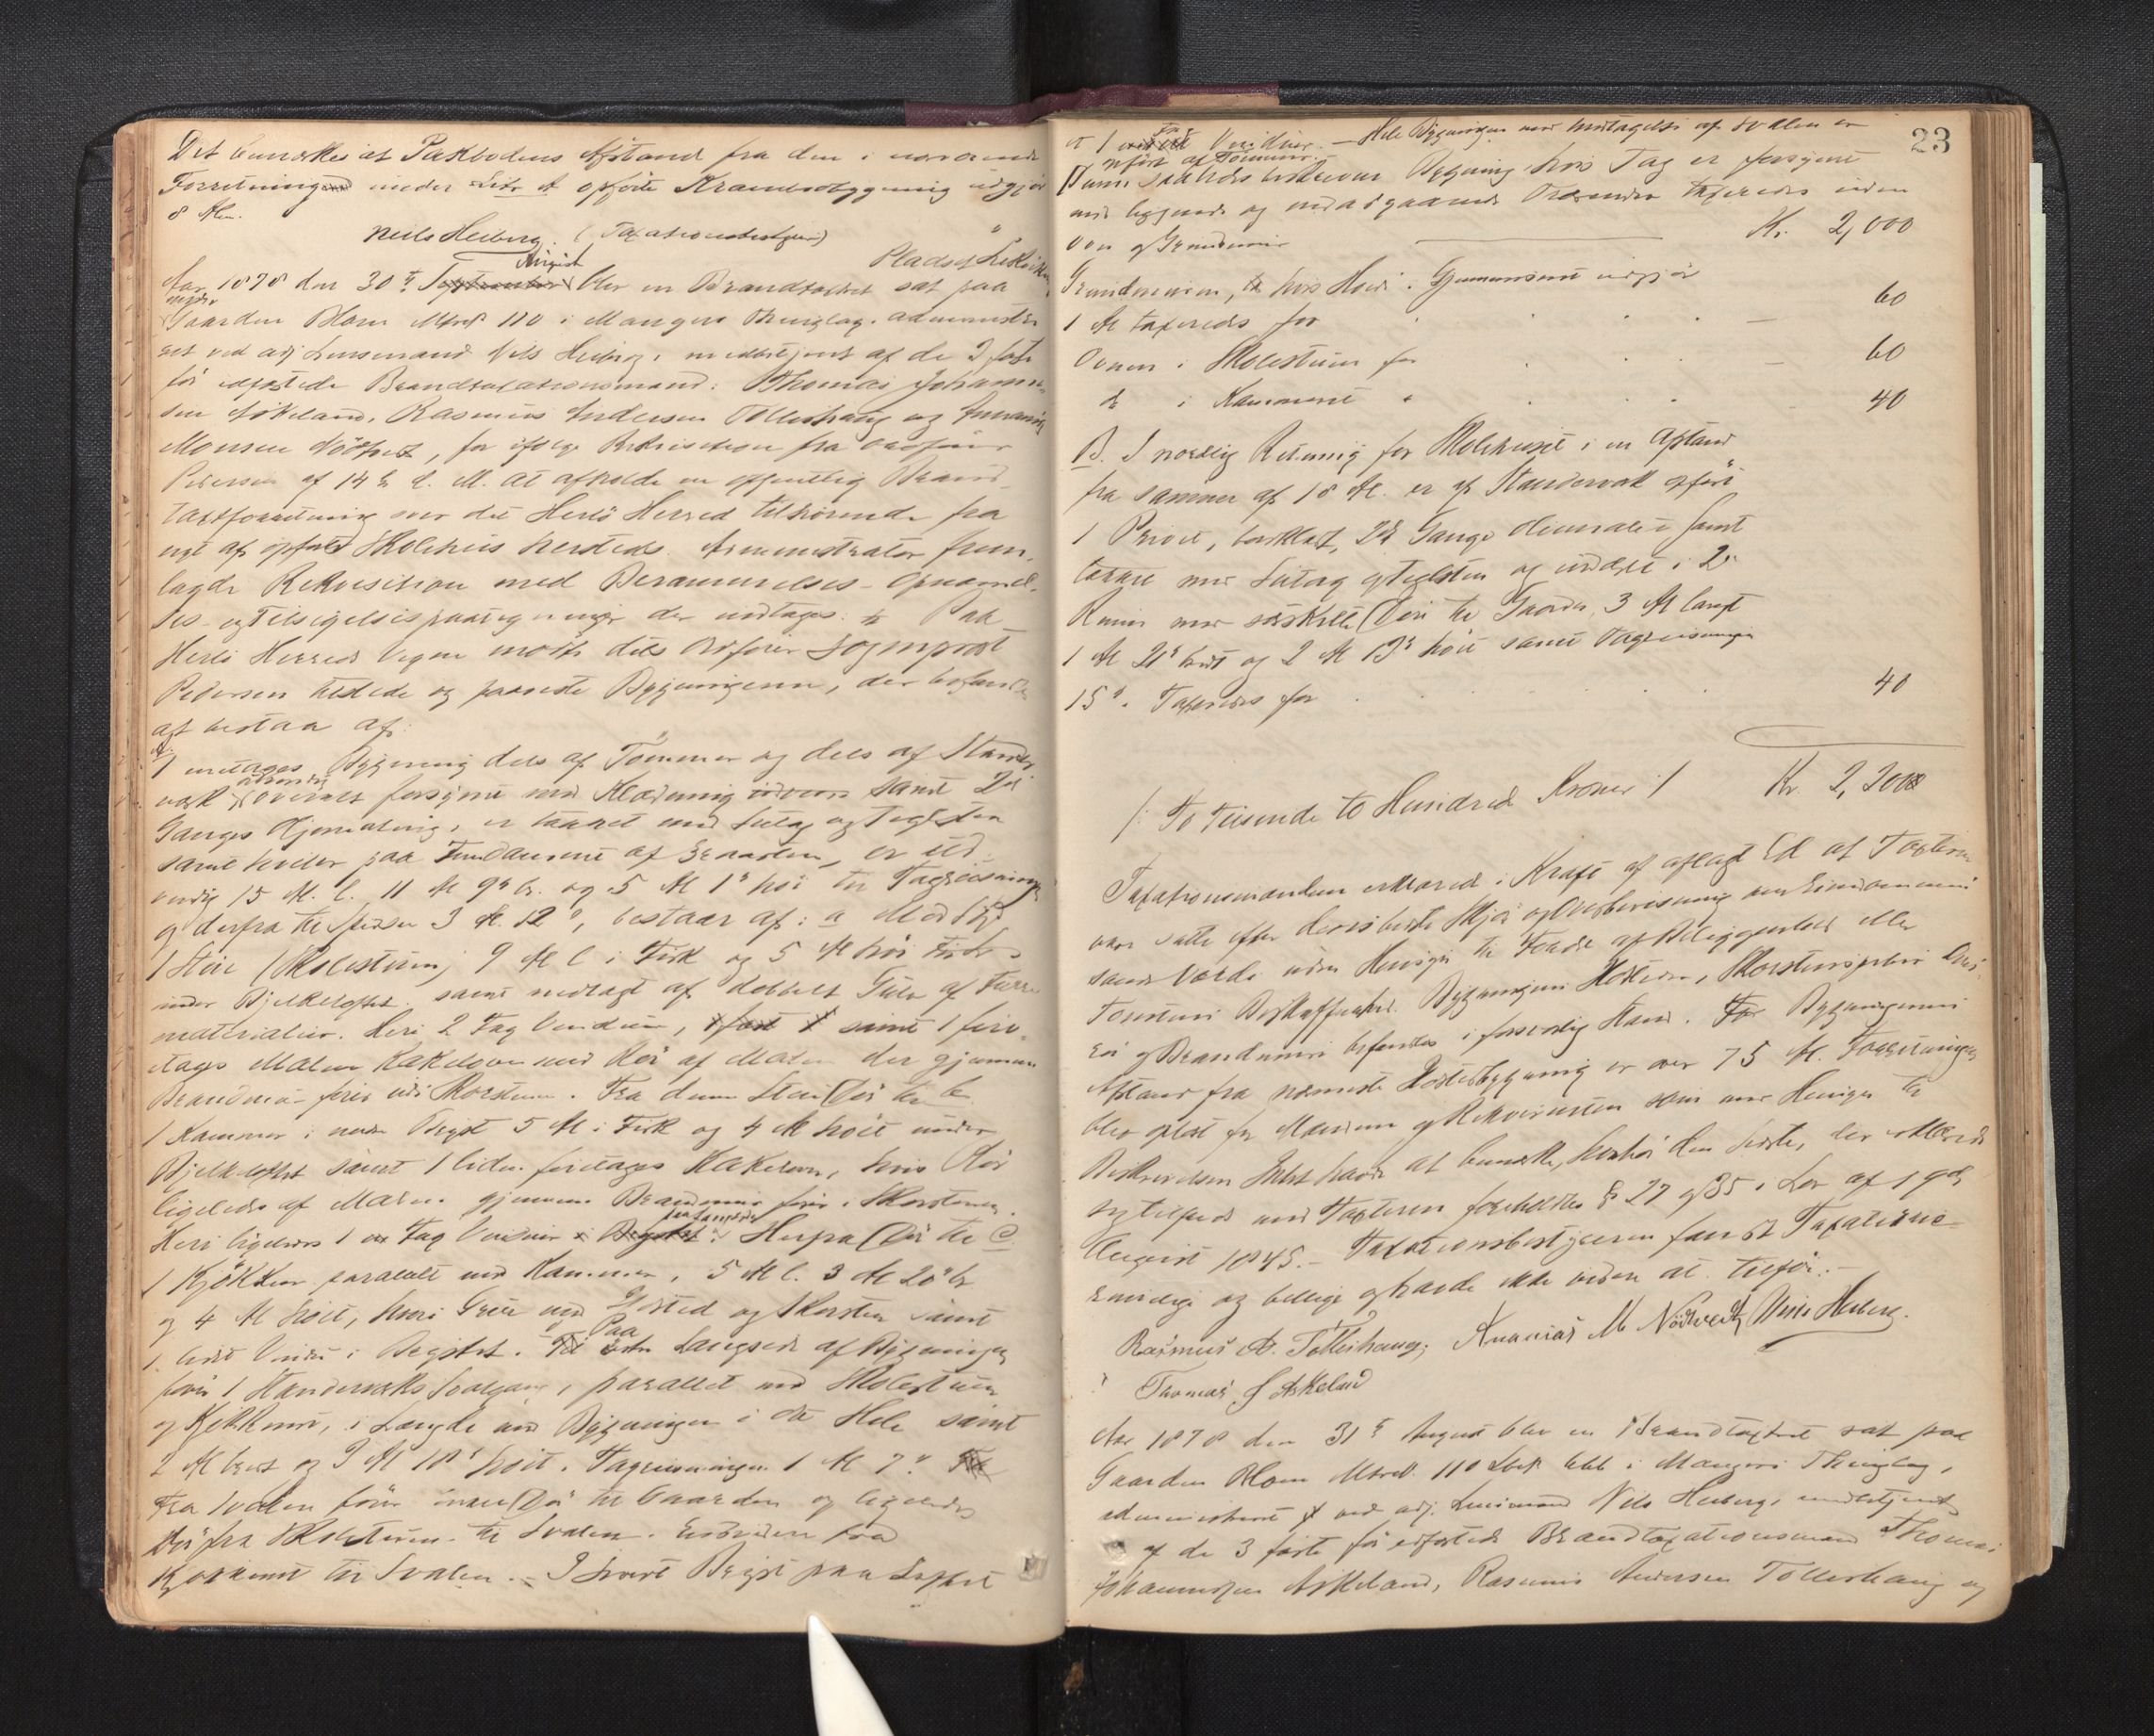 Det bemærkes at Pakbodens Afstand fra den i nærværende
Forretning under Litr A opførte Krambodbygning udgjør
8 Alen.
Niels Heiberg. (Taxationsbestyrer)
Aar 1878 den 30te August blev en Brandtaxtret sat paa Pladsen
under Gaarden Blom Matrik 110 i Mangers Thinglag, administre-
ret ved adj Lensmand Nils Heiberg, medbetjent af de 3 faste
før edfæstede Brandtaxationsmænd: Thomas Johannes-
sen Askeland, Rasmus Andersen Tolleshaug og Ananias
Monsen Nödtvedt, for ifølge Rekvisition fra Ordfører
Pedersen af 14de d. M. at afholde en offentlig Brand-
taxtforretning over det Herlö Herred tilhørende fra
nyt af opførte Skolehus hersteds. Administrator frem-
lagde Rekvisition med Berammelses- Opnævnel-
ses- og Tilsigelsespaategninger der indtages. Paa
Herlö Herreds Vegne mødte dets Ordfører Sogneprest
Pedersen tilstede og paaviste Bygningerne, der befandtes
at bestaa af:
A. 1 enetages Bygning dels af Tømmer og dels af Stænder-
værk overalt forsynet med Klædning samt 2de
Ganges Oljemaling, er tækket med Sutag og Teglsten
samt hviler paa Fundament af Graasten, er ud-
vendig 15 Al. l. 11 Al 9" br. og 5 Al 1" høi til Tagreisningen
og derfra til Spidsen 3 Al. 12", bestaar af: a Mod Syd
1 Stue (Skolestuen) 9 Al l i Firk og 5 Al høi
under Bjelkeloftet samt indlagt af dobbelt Gulv af
materialier. Heri 2 Fag Vinduer, samt 1 fire-
etages Malm Kakelovn med Rør af Malm der gjennem
Brandmur fører ud i Skorstenen. Fra denne Stue Dør til b
1 Kammer i nordre Bygst 5 Al i Firk og 4 Al høit under
Bjelkeloftet samt 1 liden firetages Kakelovn, hvis Rør
ligeledes af Malm gjennem Brandmur fører i Skorstenen.
Heri ligeledes 1 Fag Vinduer. Herfra Dør til C.
1 Kjökken parallelt med Kammer, 5 Al l. 3 Al 20" br
og 4 Al høit, hvori Grue med Ildsted og Skorsten samt
1 lidet Vindu i Bygstet. Paa Langside af Bygningen
fører 1 Stænderværks Svalgang, parallelt med Skolestuen
og Kjökkenet, i Længde med Bygningen i det Hele samt
2 Al bredt og 3 Al 18" høit. Tagreisningen 1 Al 7".
Fra Svalen fører Dør til Gaarden og ligeledes
Dør fra Skolestuen til Svalen. Endvidere fra
Kjøkkenet til Svalen. I hvert Bygst paa Loftet
23
er 1 Fag Vinduer. — Hele Bygningen med Undtagelse af Svalen er
opført af Tømmer.
Denne saaledes beskrevne Bygning hvis Tag er forsynet
med liggende og nedadgaaende taxeredes uden
Ovn og Grundmur Kr. 2,000
Grundmuren, hvis Høide i Gjennemsnit udgjør
1 Al taxeredes for 60
Ovnen i Skolestuen for 60
do i Kammeret " 40
B. I nordlig Retning for Skolehuset i en Afstand
fra samme af 18 Al. er af Stænderværk opført
1 Privet, bordklædt, 2de Gange oliemalet samt
tækket med Sutag og Teglsten og inddelt i 2de
Rum med særskilte Døre til Gaarden, 3 Al langt
1 Al 21" bredt og 2 Al 13" høit samt Tagreisningen
15". Taxeredes for 40
/: To Tusende to Hundred Kroner :/ Kr. 2,200
Taxationsmændene erklærede i Kraft af aflagt Ed at Taxterne
vare satte efter deres bedste Skjøn og Overbevisning om Eiendommens
sande Værdi uden Hensyn til Fordel af Beliggenhed eller
Tomtens Beskaffenhed. Bygningens Ildsteder, Skorstenspiber
rør og Brandmure befandtes i forsvarlig Stand. Bygningernes
Afstand fra nærmeste Ildstedbygning er over 75 Al. Forretningen
blev oplæst for Mændene og Rekvirenten som med Hensyn til
Beskrivelsen Intet havde at bemærke, herhos den sidste, der erklærede
sig tilfreds med Taxterne foreholdtes § 27 og 35 i Lov af 19de
August 1845. — Taxationsbestyreren fandt Taxterne
rimelige og billige og havde ikke videre at tilføie. —
Rasmus A. Tolleshaug, Ananias M Nödtvedt, Niels Heiberg.
Thomas J Askeland
Aar 1878 den 31te August blev en Brandtaxtret sat paa
Gaarden Blom Matrik. 110 i Mangers Thinglag,
administreret ved adj. Lensmand Nils Heiberg, medbetjent
af de 3 faste før edfæstede Brandtaxationsmænd Thomas
Johannessen Askeland, Rasmus Andersen Tolleshaug og